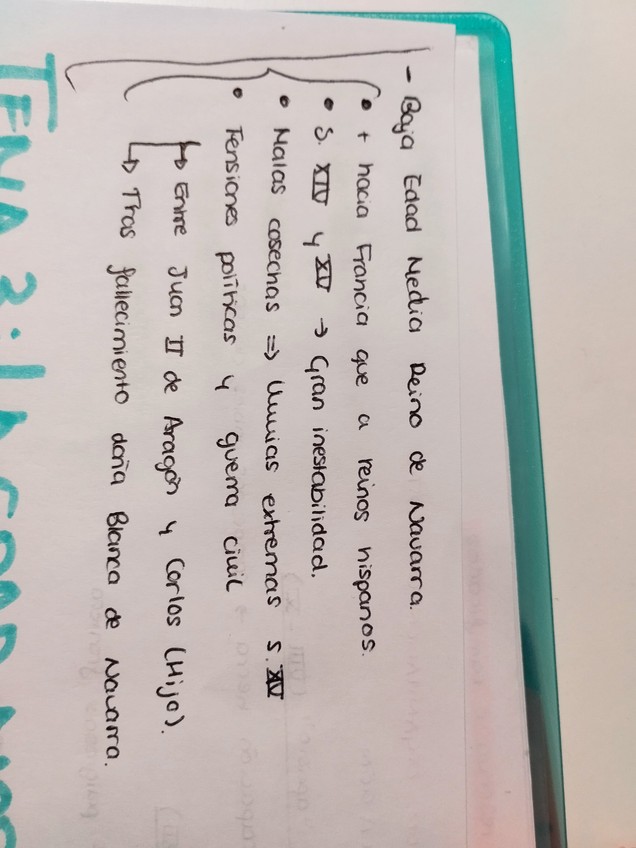 - Baja Edad Media Reino de Navarra.
• + hacia Francia que a reinos hispanos.
• S. XIV y XV → Gran inestabilidad.
• Malas cosechas => lluvias extremas S. XIV
• Tensiones políticas y guerra civil
↳ Entre Juan II de Aragón y Carlos (Hijo).
↳ Tras fallecimiento doña Blanca de Navarra.
TEMA 3: LA